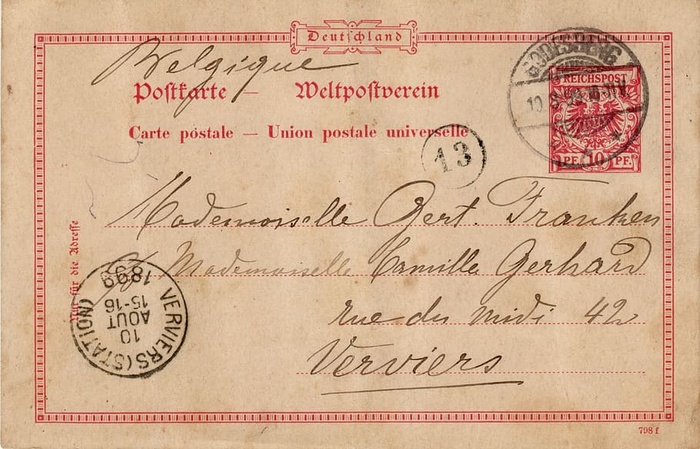 Deutschland
Belgique
Postkarte — Weltpostverein
Carte postale — Union postale universelle
GODESBERG
10 8 99
REICHSPOST
10 PF.
13
Mademoiselle Gert. Franken
Mademoiselle Camille Gerhard
rue du midi 42
Verviers
Nur für die Adresse
VERVIERS (STATION)
10
AOUT
15-16
1899
798 f